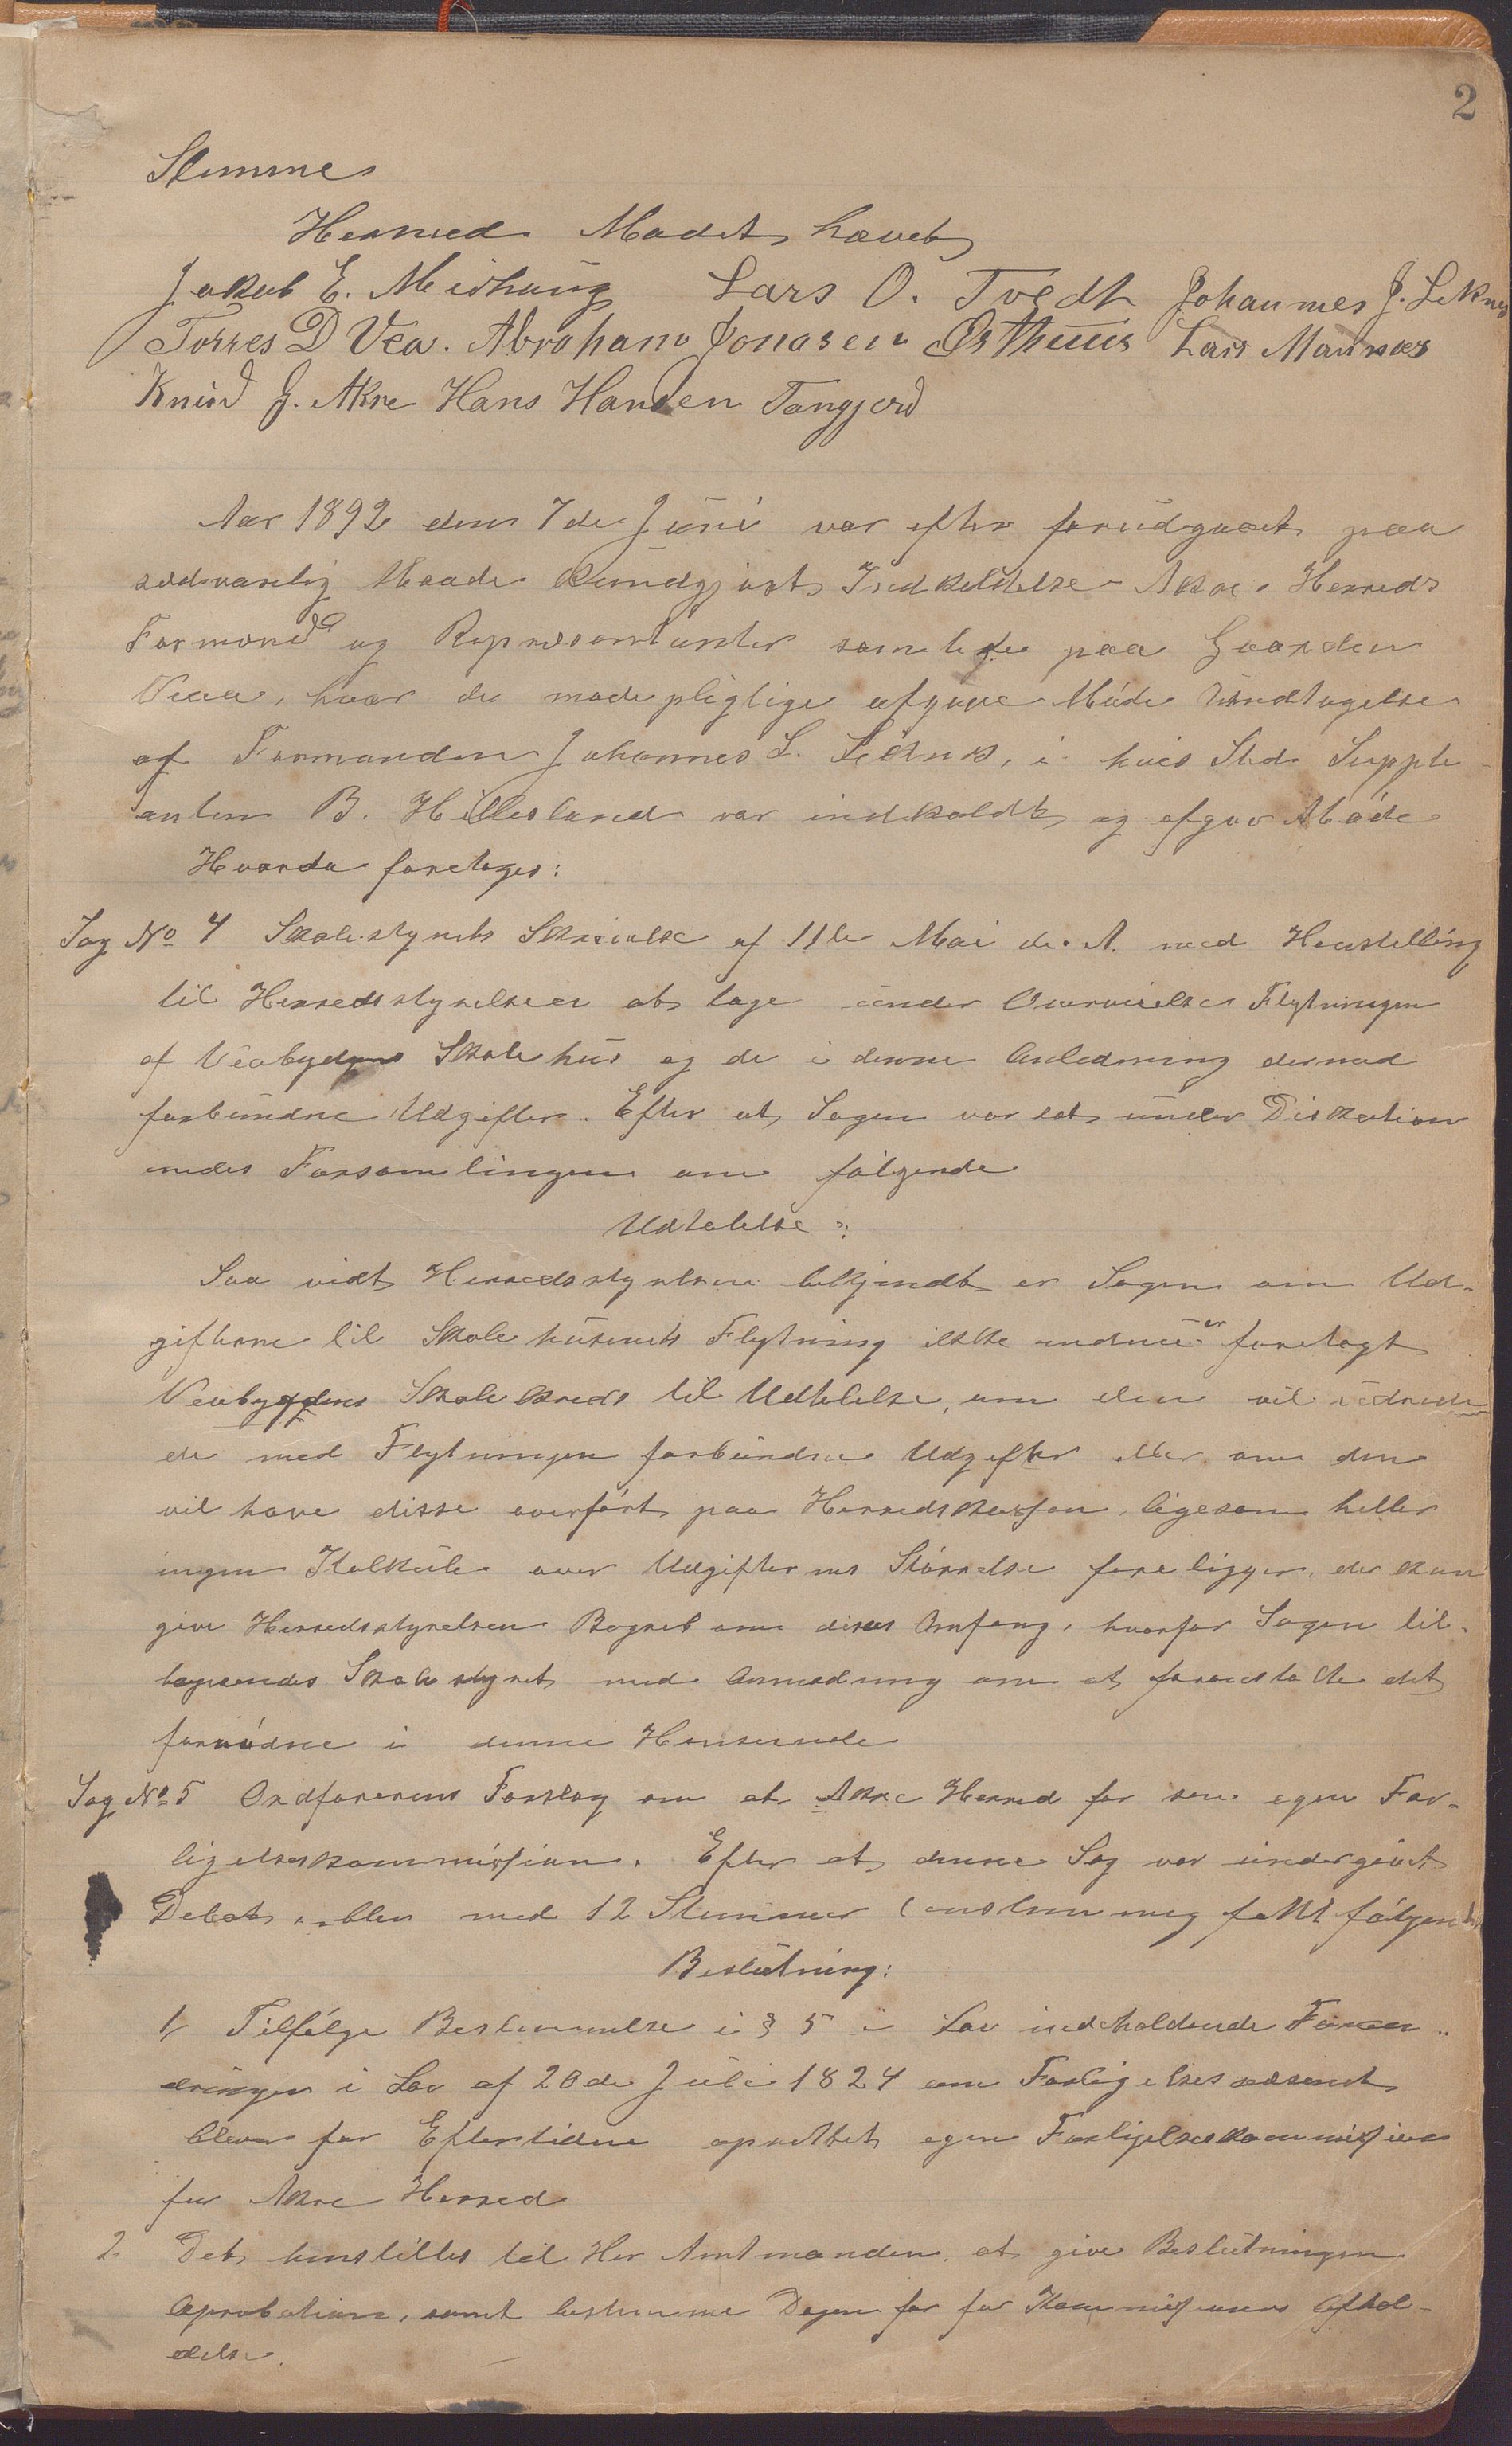 2
Stemmer
Hermed Mødet hævet
Jakob E. Mednaug Lars O. Tvedt Johannes J. Liknes
Torres D Vea. Abraham Jonasen Østhuus Lars Mannæs
Knud J. Akre Hans Hansen Tangjerd
Aar 1892 den 7de Juni var efter forudgaaet paa
sædvanlig Maade kundgjort Indkaldelse Akre Herreds
Formænd og Repræsentanter samlede paa Gaarden
Veaa, hvor de mødepligtige afgave Møde undtagelse
af Formanden Johannes L. Liknes, i hvis Sted Supple-
anten B. Hillesland var indkaldt og afgav Møde
Hvorda foretoges:
Sag No 4 Skolestyrets Skrivelse af 11te Mai d. A. med Henstilling
til Herredsstyrelsen at tage under Overveielse Flytningen
af Veabygdens Skolehus og de i denne Anledning dermed
forbundne Udgifter. Efter at Sagen var sat under Diskution
enedes Forsamlingen om følgende
Udtalelse:
Saa vidt Herredsstyrelsen bekjendt er Sagen om Ud-
gifterne til Skolehusets Flytning ikke endnu er foretagt
Veabygdens Skolekreds til Udtalelse, om den vil udrede
de med Flytningen forbundne Udgifter eller om den
vil have disse overført paa Herredskassen, ligesom heller
ingen Kalkule over Udgifternes Størrelse foreligger, der kan
give Herredsstyrelsen Begreb om disses Omfang, hvorfor Sagen til-
bagesendes Skolestyret med Anmodning om at foranstalte det
fornødne i denne Henseende
Sag No 5 Ordførerens Forslag om at Akre Herred får sin egen For-
ligelseskommission. Efter at denne Sag var undergivet
Debat, blev med 12 Stemmer (enstemmig fattet følgende
Beslutning:
1, Tilfølge Bestemmelse i § 5 i Lov indeholdende Foran-
dringer i Lov af 20de Juli 1824 om Forligelsesvæsenet
bliver for Eftertiden oprettet egen Forligelseskommission
for Akre Herred
2 Det henstilles til Her Amtmanden, at give Beslutningen
Aprobation, samt bestemme Dagen for for Kommissionens Afhol-
delse.